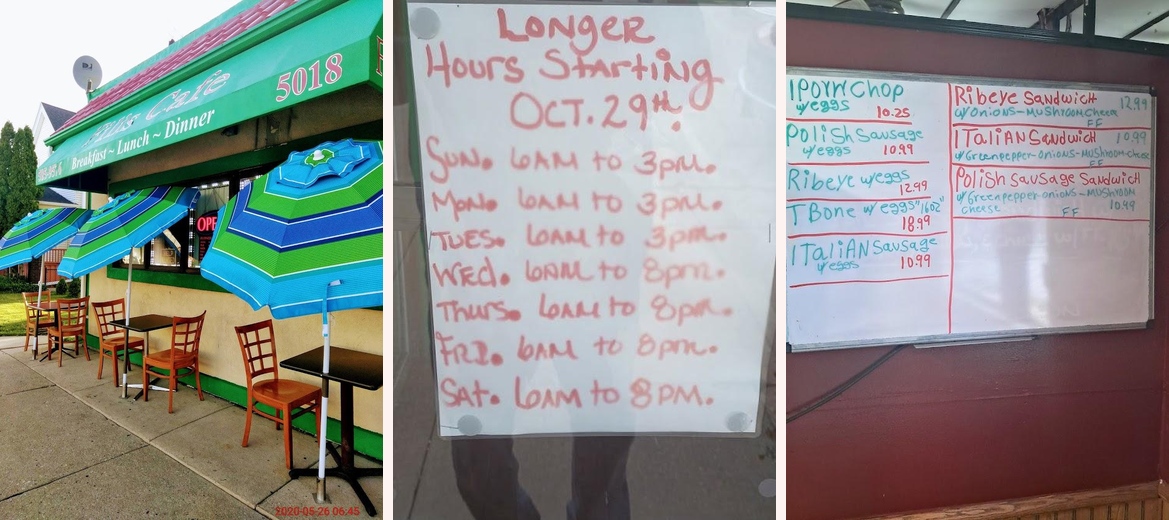 Cafe
5018
Breakfast ~ Lunch ~ Dinner
OPE
2020-05-26 06:45
Longer
Hours Starting
Oct. 29th.
Sun. 6AM to 3pm.
Mon. 6AM to 3pm.
Tues. 6AM to 3pm.
Wed. 6AM to 8pm.
Thurs. 6AM to 8pm.
Fri. 6AM to 8pm.
Sat. 6AM to 8PM.
1 PORK CHOP
w/eggs 10.25
Polish Sausage
w/eggs 10.99
Ribeye w/eggs
12.99
TBone w/ eggs "16oz"
18.99
ITaliAN Sausage
w/eggs 10.99
Ribeye Sandwich 12.99
w/Onions-Mushroom Cheese
FF
ITaliAN Sandwich 10.99
w/Greenpepper-Onions-Mushroom-Cheese
FF
Polish Sausage Sandwich
w/Greenpepper-onions-Mushroom
cheese FF 10.49